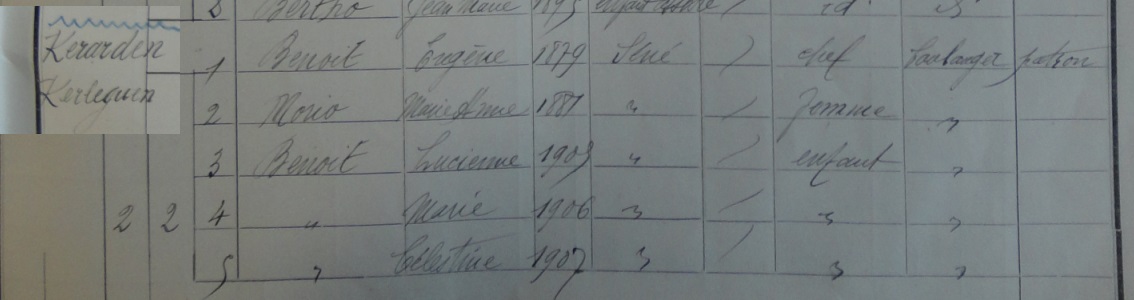 2 Bertho Jean Marie 1895 id
Kerarden
Kerleguen
1 Benoit Eugène 1879 Séné / chef boulanger patron
2 Morio Marie Anne 1881 " / femme "
3 Benoit Lucienne 1905 " / enfant "
2 2 4 " Marie 1906 " / " "
5 " Célestine 1907 " / " "